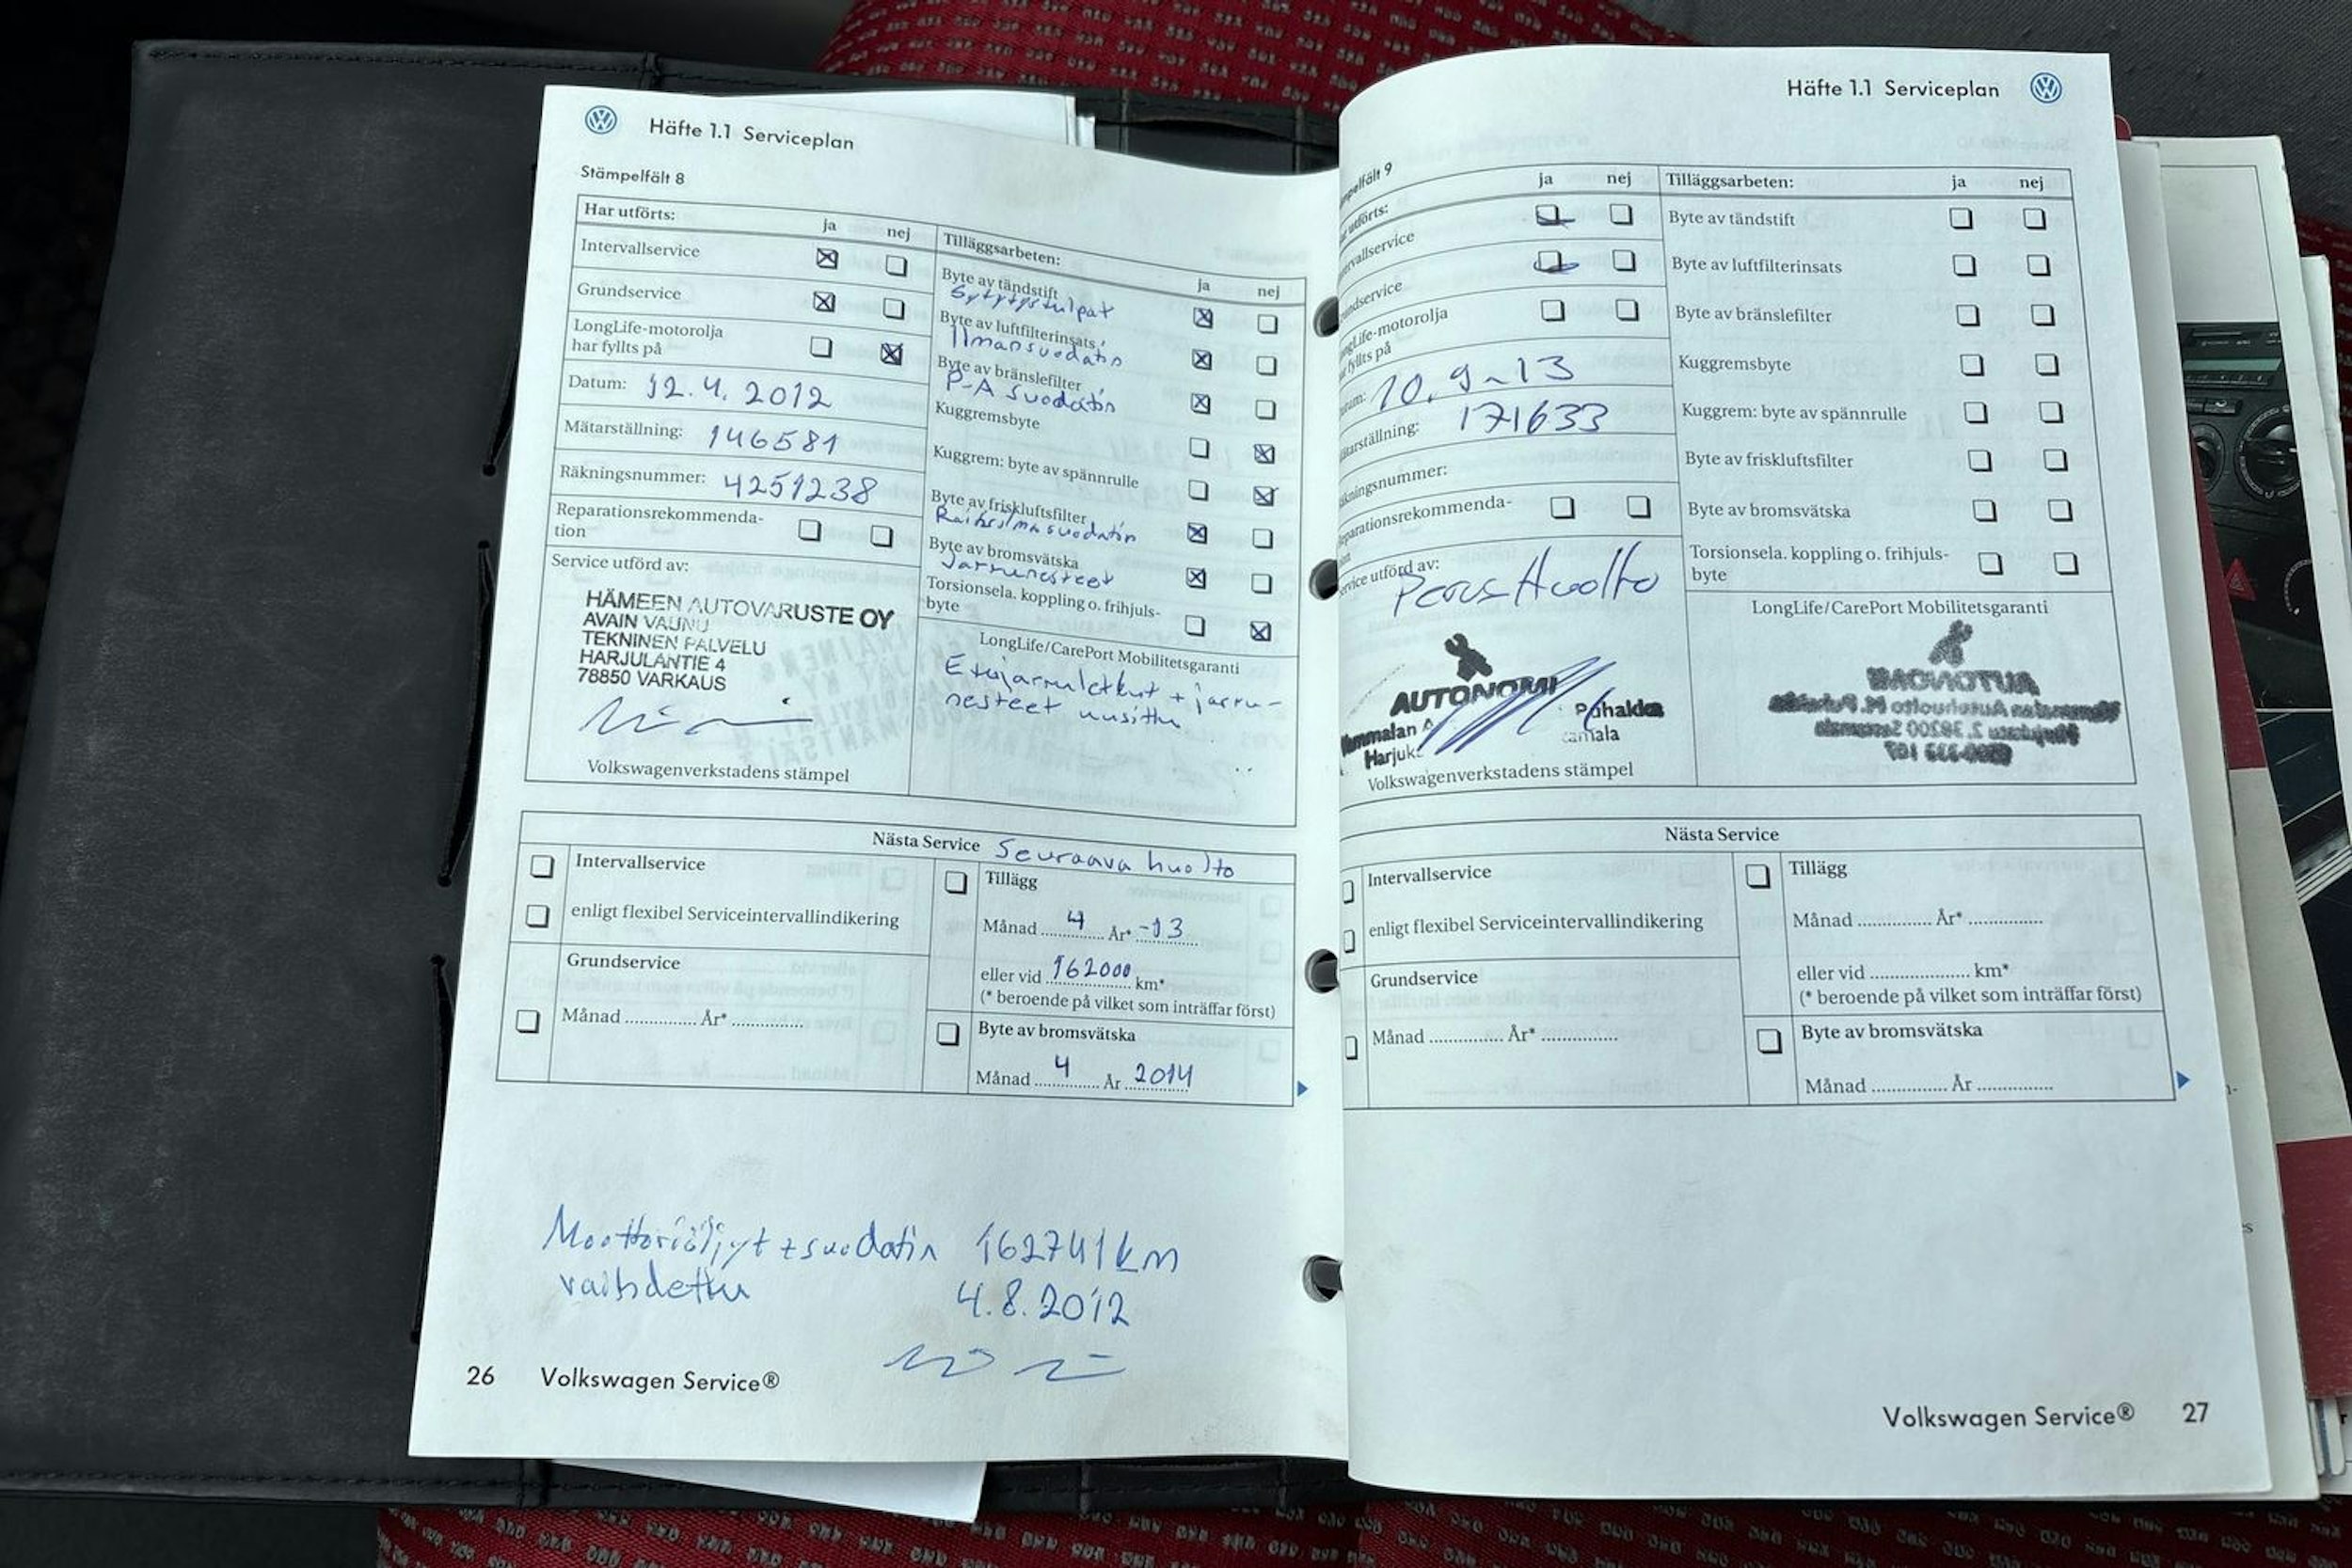 Häfte 1.1 Serviceplan
Stämpelfält 8
Har utförts: ja nej
Intervallservice
Grundservice
LongLife-motorolja
har fyllts på
Datum: 12.4.2012
Mätarställning: 146581
Räkningsnummer: 4251238
Reparationsrekommenda-
tion
Service utförd av:
HÄMEEN AUTOVARUSTE OY
AVAIN VAUNU
TEKNINEN PALVELU
HARJULANTIE 4
78850 VARKAUS
Volkswagenverkstadens stämpel
Tilläggsarbeten: ja nej
Byte av tändstift
Sytytystulpat
Byte av luftfilterinsats
Ilmansuodatin
Byte av bränslefilter
P-A suodatin
Kuggremsbyte
Kuggrem: byte av spännrulle
Byte av friskluftsfilter
Raitisilmasuodatin
Byte av bromsvätska
Jarrunesteet
Torsionsela. koppling o. frihjuls-
byte
LongLife/CarePort Mobilitetsgaranti
Etujarruletkut + jarru-
nesteet uusittu
Nästa Service Seuraava huolto
Intervallservice
enligt flexibel Serviceintervallindikering
Grundservice
Månad ............ År* ............
Tillägg
Månad 4 År* -13
eller vid 162000 km*
(* beroende på vilket som inträffar först)
Byte av bromsvätska
Månad 4 År 2014
Moottoriöljyt + suodatin 162741 km
vaihdettu 4.8.2012
26 Volkswagen Service®
Häfte 1.1 Serviceplan
mpelfält 9
utförts: ja nej
rvallservice
ndservice
ngLife-motorolja
fyllts på
tum: 10.9-13
tarställning: 171633
kningsnummer:
eparationsrekommenda-
on
ervice utförd av:
Perus Huolto
AUTONOMI
mmalan A Puhakka
Harjuk
Volkswagenverkstadens stämpel
Tilläggsarbeten: ja nej
Byte av tändstift
Byte av luftfilterinsats
Byte av bränslefilter
Kuggremsbyte
Kuggrem: byte av spännrulle
Byte av friskluftsfilter
Byte av bromsvätska
Torsionsela. koppling o. frihjuls-
byte
LongLife/CarePort Mobilitetsgaranti
AUTONOMI
Nästa Service
Intervallservice
enligt flexibel Serviceintervallindikering
Grundservice
Månad ............ År* ............
Tillägg
Månad ............ År* ............
eller vid ................ km*
(* beroende på vilket som inträffar först)
Byte av bromsvätska
Månad ............ År ............
Volkswagen Service® 27